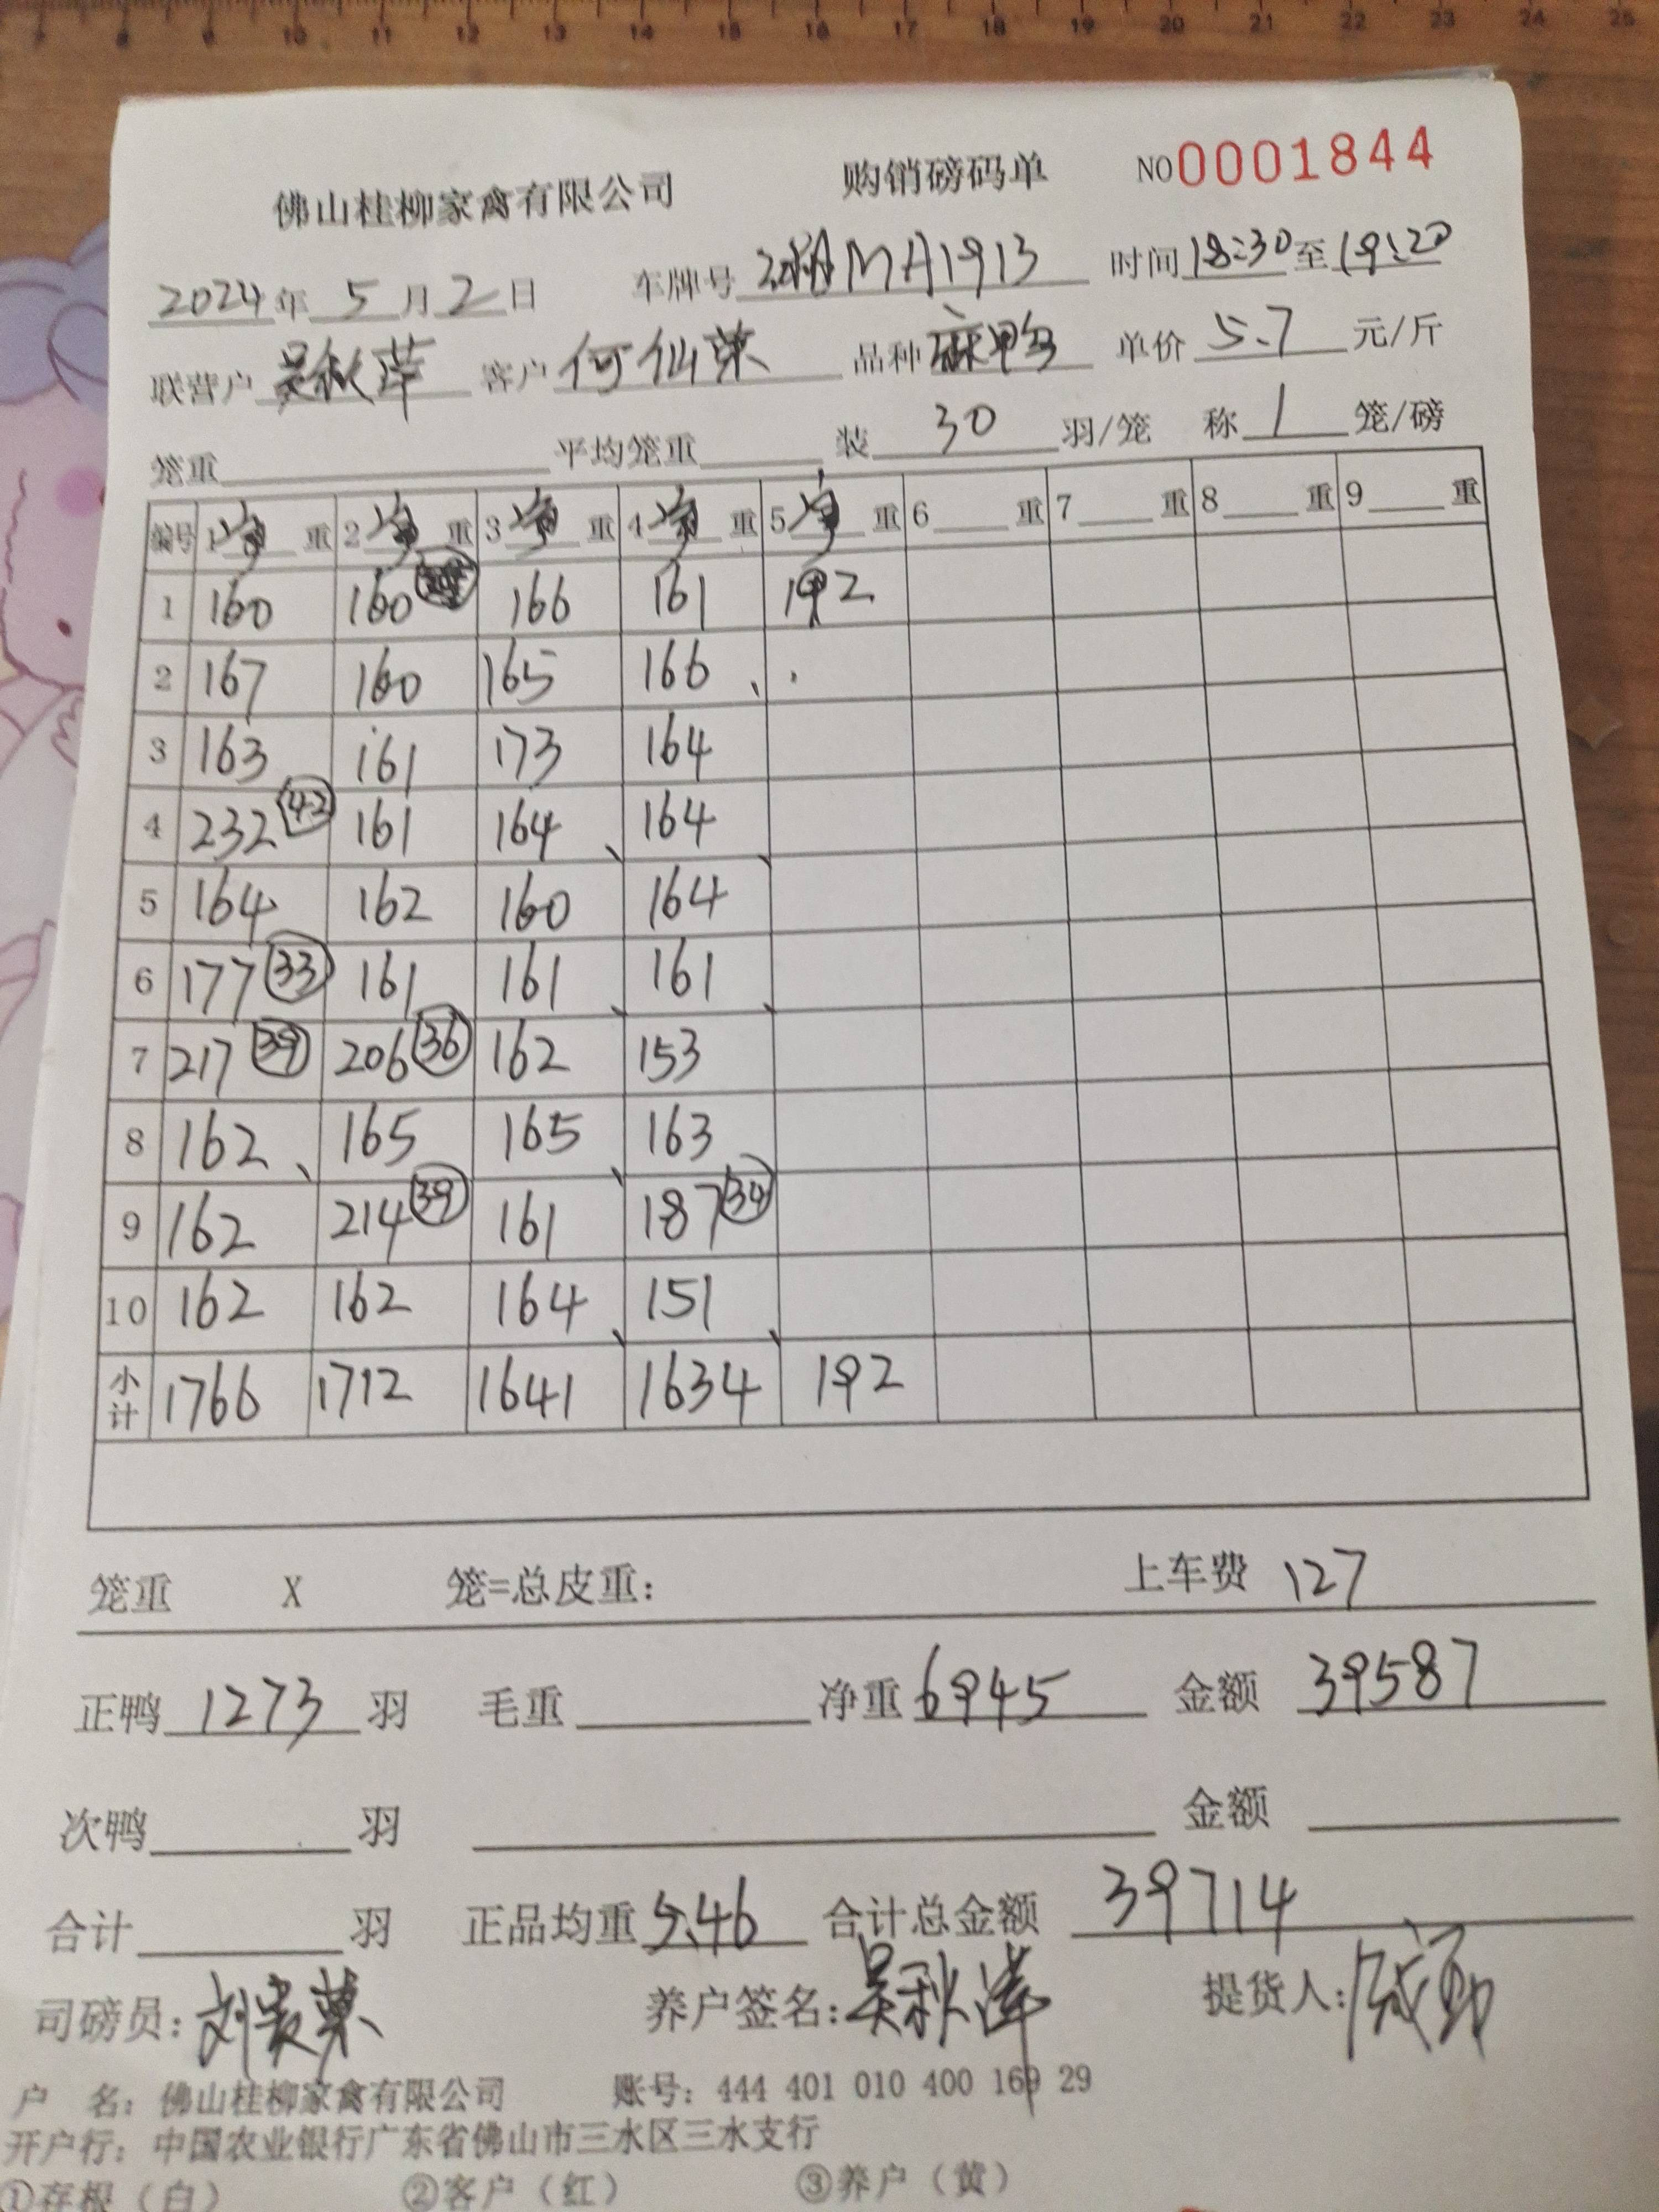 7 8 9 10 11 12 13 14 15 16 17 18 19 20 21 22 23 24 25
佛山桂柳家禽有限公司 购销磅码单 NO 0001844
2024年5月2日 车牌号 MA1913 时间18:30至19:20
联营户 吴秋萍 客户 何仙荣 品种 麻鸭 单价 5.7 元/斤
笼重 平均笼重 装 30 羽/笼 称 1 笼/磅
编号 1净重 2净重 3净重 4净重 5净重 6 重 7 重 8 重 9 重
1 160 160 166 161 192
2 167 160 165 166
3 163 161 173 164
4 232 42 161 164 164
5 164 162 160 164
6 177 33 161 161 161
7 217 39 206 36 162 153
8 162 165 165 163
9 162 214 39 161 187 34
10 162 162 164 151
小计 1766 1712 1641 1634 192
笼重 X 笼=总皮重: 上车费 127
正鸭 1273 羽 毛重 净重 6945 金额 39587
次鸭 羽 金额
合计 羽 正品均重 5.46 合计总金额 39714
司磅员: 养户签名: 吴秋萍 提货人:
户 名: 佛山桂柳家禽有限公司 账号: 444 401 010 400 169 29
开户行: 中国农业银行广东省佛山市三水区三水支行
①存根（白） ②客户（红） ③养户（黄）